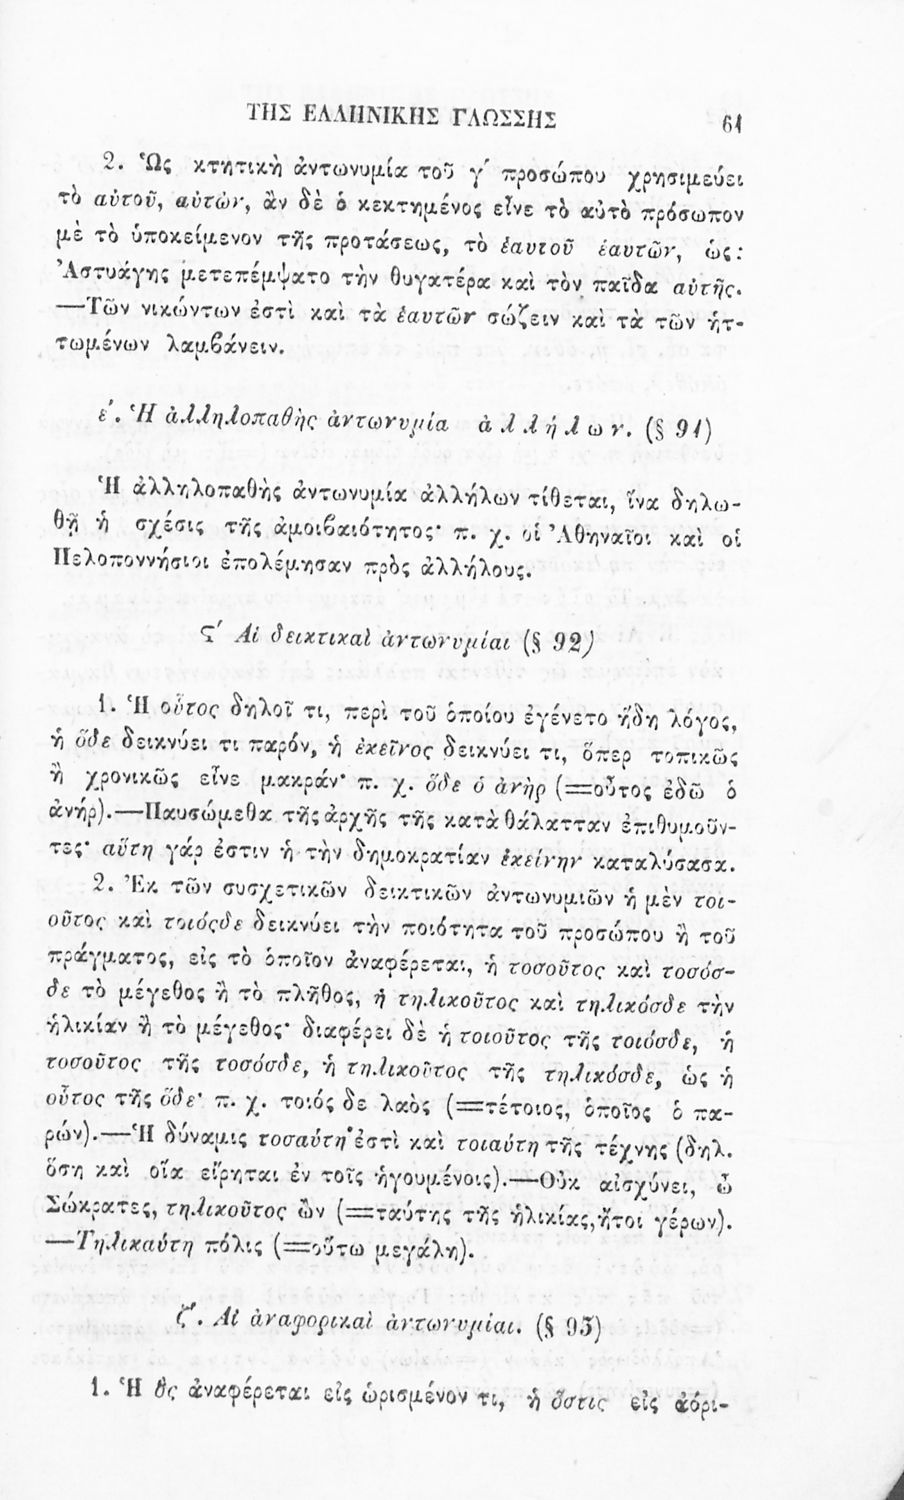 ΤΗΣ ΕΛΛΗΝΙΚΗΣ ΓΛΩΣΣΗΣ 61
2. Ὡς κτητικὴ ἀντωνυμία τοῦ γ΄ προσώπου χρησιμεύει
τὸ αὐτοῦ, αὐτῶν, ἂν δὲ ὁ κεκτημένος εἶνε τὸ αὐτὸ πρόσωπον
μὲ τὸ ὑποκείμενον τῆς προτάσεως, τὸ ἑαυτοῦ ἑαυτῶν, ὡς:
Ἀστυάγης μετεπέμψατο τὴν θυγατέρα καὶ τὸν παῖδα αὐτῆς.
—Τῶν νικώντων ἐστὶ καὶ τὰ ἑαυτῶν σώζειν καὶ τὰ τῶν ἡτ-
τωμένων λαμβάνειν.
ε΄. Ἡ ἀλληλοπαθὴς ἀντωνυμία ἀλλήλων. (§ 91)
Ἡ ἀλληλοπαθὴς ἀντωνυμία ἀλλήλων τίθεται, ἵνα δηλω-
θῇ ἡ σχέσις τῆς ἀμοιβαιότητος· π. χ. οἱ Ἀθηναῖοι καὶ οἱ
Πελοποννήσιοι ἐπολέμησαν πρὸς ἀλλήλους.
ς΄ Αἱ δεικτικαὶ ἀντωνυμίαι (§ 92)
1. Ἡ οὗτος δηλοῖ τι, περὶ τοῦ ὁποίου ἐγένετο ἤδη λόγος,
ἡ ὅδε δεικνύει τι παρόν, ἡ ἐκεῖνος δεικνύει τι, ὅπερ τοπικῶς
ἢ χρονικῶς εἶνε μακράν· π. χ. ὅδε ὁ ἀνὴρ (=οὗτος ἐδῶ ὁ
ἀνήρ).—Παυσώμεθα τῆς ἀρχῆς τῆς κατὰ θάλατταν ἐπιθυμοῦν-
τες· αὕτη γάρ ἐστιν ἡ τὴν δημοκρατίαν ἐκείνην καταλύσασα.
2. Ἐκ τῶν συσχετικῶν δεικτικῶν ἀντωνυμιῶν ἡ μὲν τοι-
οῦτος καὶ τοιόςδε δεικνύει τὴν ποιότητα τοῦ προσώπου ἢ τοῦ
πράγματος, εἰς τὸ ὁποῖον ἀναφέρεται, ἡ τοσοῦτος καὶ τοσόσ-
δε τὸ μέγεθος ἢ τὸ πλῆθος, ἡ τηλικοῦτος καὶ τηλικόσδε τὴν
ἡλικίαν ἢ τὸ μέγεθος· διαφέρει δὲ ἡ τοιοῦτος τῆς τοιόσδε, ἡ
τοσοῦτος τῆς τοσόσδε, ἡ τηλικοῦτος τῆς τηλικόσδε, ὡς ἡ
οὗτος τῆς ὅδε· π. χ. τοιός δε λαὸς (=τέτοιος, ὁποῖος ὁ πα-
ρών).—Ἡ δύναμις τοσαύτη ἐστὶ καὶ τοιαύτη τῆς τέχνης (δηλ.
ὅση καὶ οἵα εἴρηται ἐν τοῖς ἡγουμένοις).—Οὐκ αἰσχύνει, ὦ
Σώκρατες, τηλικοῦτος ὢν (=ταύτης τῆς ἡλικίας, ἤτοι γέρων).
—Τηλικαύτη πόλις (=οὕτω μεγάλη).
ζ΄. Αἱ ἀναφορικαὶ ἀντωνυμίαι. (§ 93)
1. Ἡ ὃς ἀναφέρεται εἰς ὡρισμένον τι, ἡ ὅστις εἰς ἀόρι-